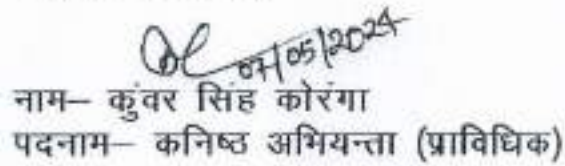 07/05/2024
नाम– कुंवर सिंह कोरंगा
पदनाम– कनिष्ठ अभियन्ता (प्राविधिक)